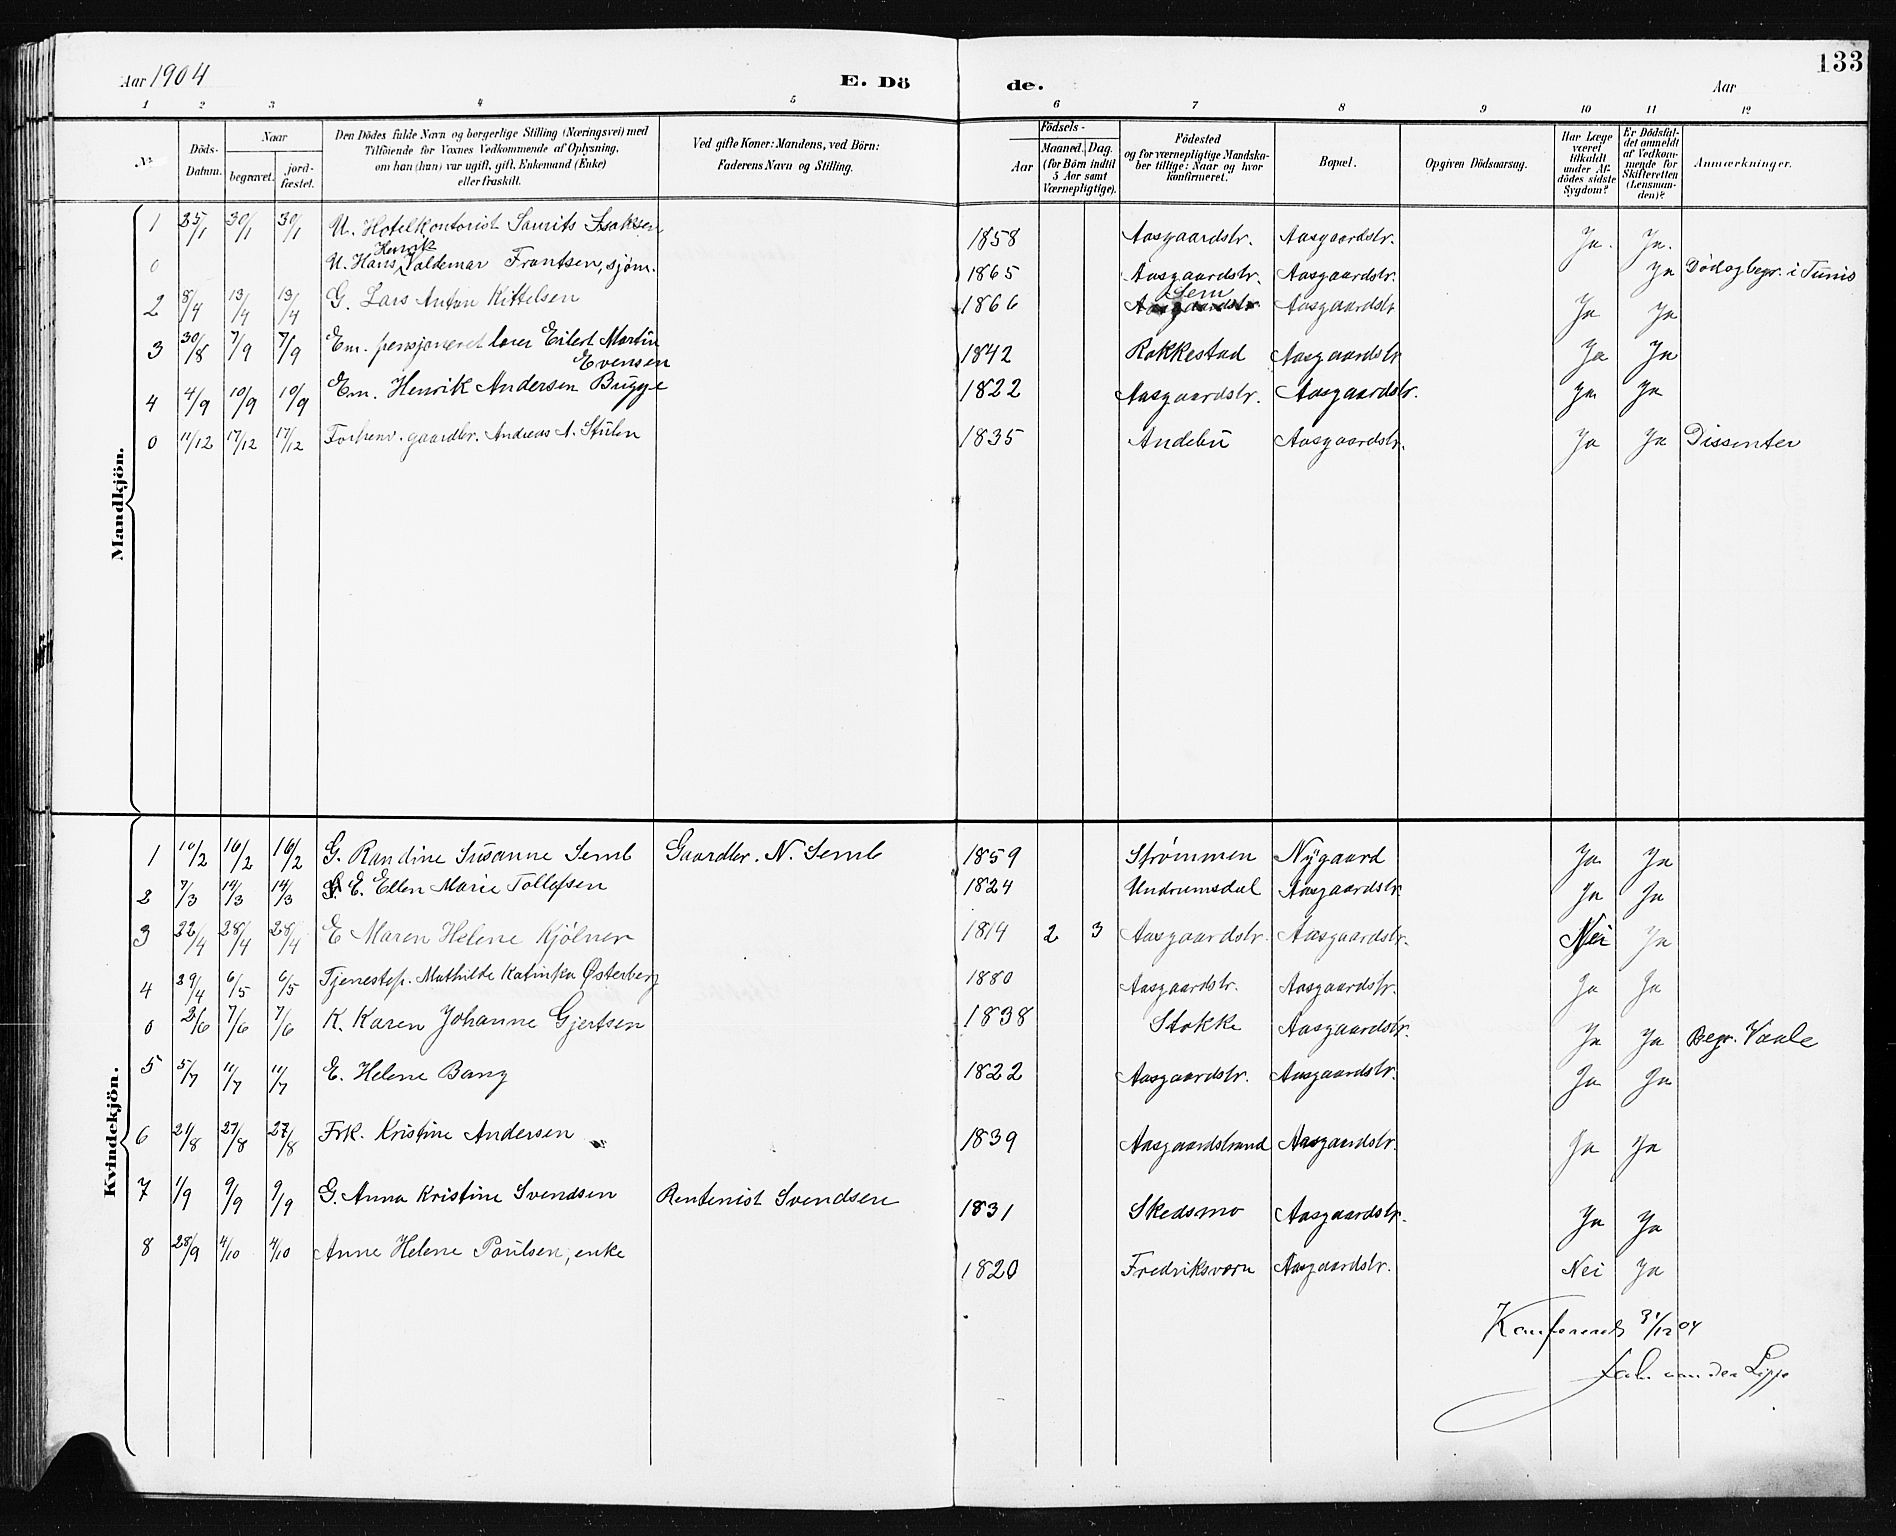 133
Aar 1904 E. Dö de. Aar
1 2 3 4 5 6 7 8 9 10 11 12
№
Döds-Datum.
Naar
begravet.
jord-fæstet.
Den Dödes fulde Navn og borgerlige Stilling (Næringsvei) med
Tilföiende for Voxnes Vedkommende af Oplysning,
om han (hun) var ugift, gift, Enkemand (Enke)
eller fraskilt.
Ved gifte Koner: Mandens, ved Börn:
Faderens Navn og Stilling.
Födsels-
Aar
Maaned. Dag.
(for Börn indtil
5 Aar samt
Værnepligtige).
Födested
og for værnepligtige Mandska-
ber tillige: Naar og hvor
konfirmeret.
Bopæl.
Opgiven Dödsaarsag.
Har Læge
været
tilkaldt
under Af-
dödes sidste
Sygdom?
Er Dödsfal-
det anmeldt
af Vedkom-
mende for
Skifteretten
(Lensman-
den)?
Anmærkninger.
Mandkjön.
1 25/1 30/1 30/1 U. Hotelkontorist Laurits Isaksen 1858 Aasgaardstr. Aasgaardstr. Ja. Ja.
Henrik
0 U. Hans Valdemar Frantsen, sjøm. 1865 Aasgaardstr. Aasgaardstr. Ja Død og begr. i Tunis
Sem
2 8/4 13/4 13/4 G. Lars Anton Kittelsen 1866 Aasgaardstr. Aasgaardstr Ja Ja
3 30/8 7/9 7/9 Em. pensjoneret lærer Eilert Martin 1842 Rakkestad Aasgaardstr Ja Ja
Evensen
4 4/9 10/9 10/9 Em. Henrik Andersen Bugge 1822 Aasgaardstr. Aasgaardstr. Ja Ja
0 11/12 17/12 17/12 Forhenv. gaardbr. Andreas A. Stulen 1835 Andebu Aasgaardstr. Ja Ja Dissenter
Kvindekjön.
1 10/2 16/2 16/2 G. Randine Susanne Semb Gaardbr. N. Semb 1859 Strømmen Nygaard Ja Ja
2 7/3 14/3 14/3 E. Ellen Marie Tollefsen 1824 Undrumsdal Aasgaardstr Ja Ja
3 22/4 28/4 28/4 E Maren Helene Kjølner 1814 2 3 Aasgaardstr. Aasgaardstr. Nei Ja
4 29/4 6/5 6/5 Tjenestep. Mathilde Katinka Østerberg 1880 Aasgaardstr. Aasgaardstr. Ja Ja
0 3/6 7/6 7/6 K. Karen Johanne Gjertsen 1838 Stokke Aasgaardstr. Ja Ja Begr. Vaale
5 5/7 11/7 11/7 E. Helene Bang 1822 Aasgaardstr. Aasgaardstr. Ja Ja
6 21/8 27/8 27/8 Frk. Kristine Andersen 1839 Aasgaardstrand Aasgaardstr. Ja Ja
7 1/9 9/9 9/9 G. Anna Kristine Svendsen Rentenist Svendsen 1831 Skedsmo Aasgaardstr. Ja Ja
8 28/9 4/10 4/10 Anne Helene Poulsen, enke 1820 Fredriksværn Aasgaardstr. Nei Ja
Konfereret 31/12 04
Jak. van der Lippe